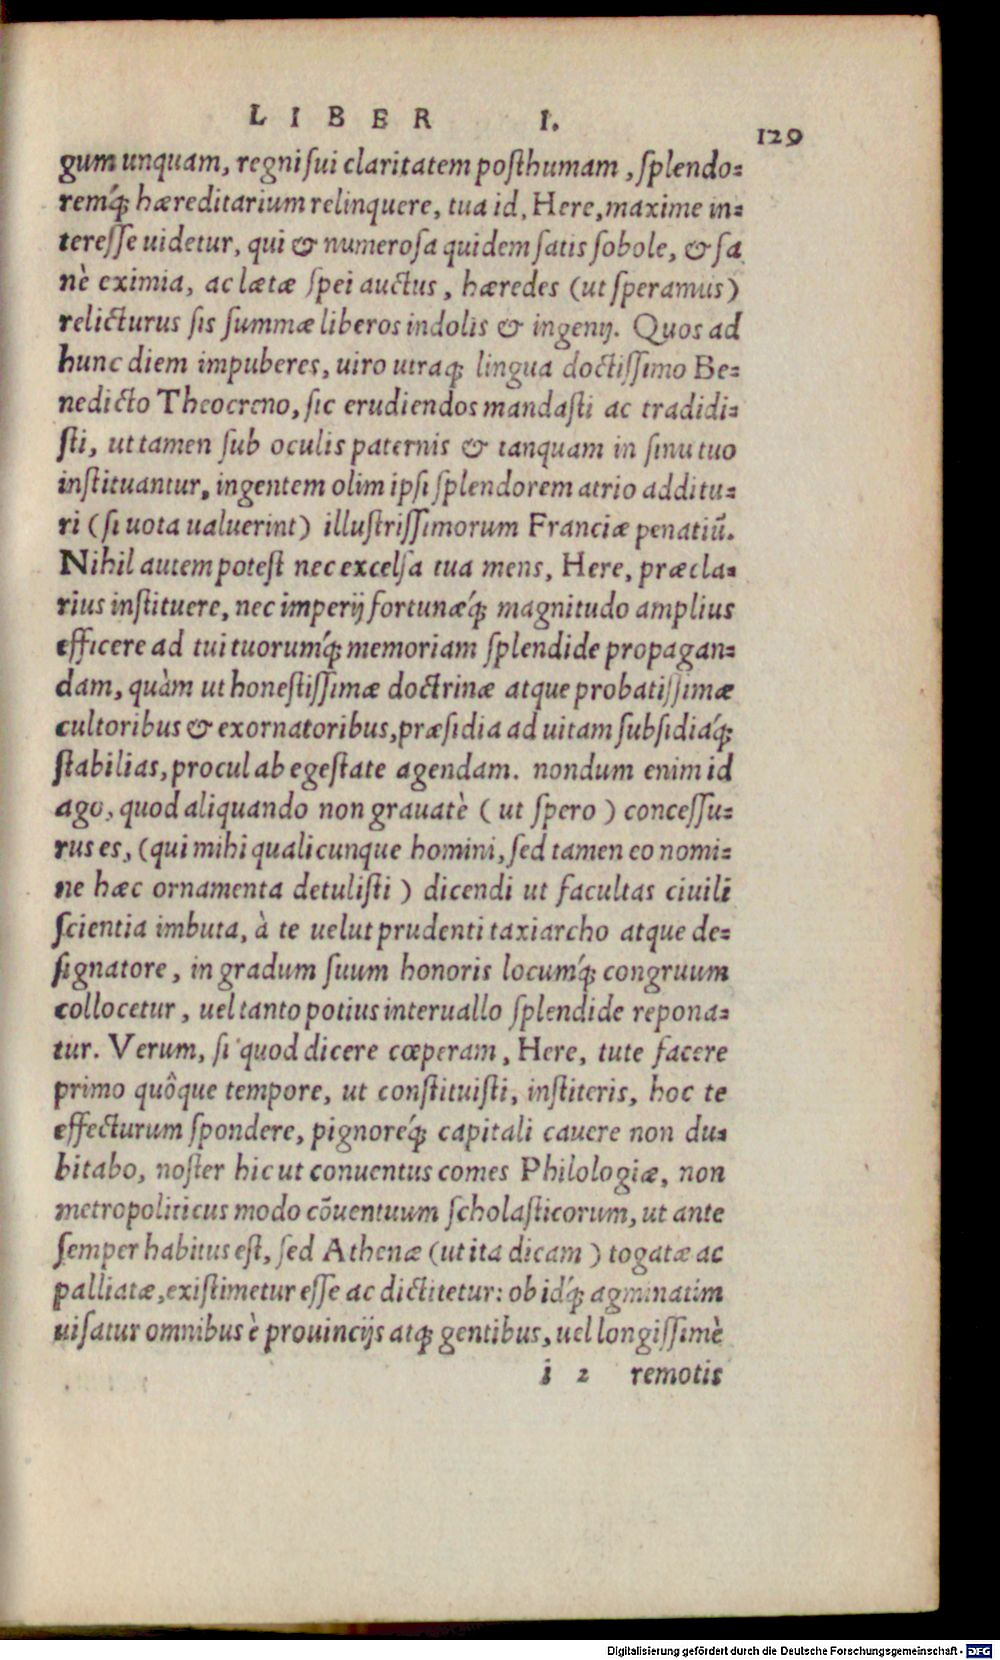 LIBER I. 129
gum unquam, regni sui claritatem posthumam, splendo=
remq́; hæreditarium relinquere, tua id, Here, maxime in=
teresse uidetur, qui & numerosa quidem satis sobole, & sa
nè eximia, ac lætæ spei auctus, hæredes (ut speramus)
relicturus sis summæ liberos indolis & ingenij. Quos ad
hunc diem impuberes, uiro utraq; lingua doctissimo Be=
nedicto Theocreno, sic erudiendos mandasti ac tradidi=
sti, ut tamen sub oculis paternis & tanquam in sinu tuo
instituantur, ingentem olim ipsi splendorem atrio additu=
ri (si uota ualuerint) illustrissimorum Franciæ penatiū.
Nihil autem potest nec excelsa tua mens, Here, præcla=
rius instituere, nec imperij fortunæq́; magnitudo amplius
efficere ad tui tuorumq́; memoriam splendide propagan=
dam, quàm ut honestissimæ doctrinæ atque probatissimæ
cultoribus & exornatoribus, præsidia ad uitam subsidiáq;
stabilias, procul ab egestate agendam. nondum enim id
ago, quod aliquando non grauatè (ut spero) concessu=
rus es, (qui mihi qualicunque homini, sed tamen eo nomi=
ne hæc ornamenta detulisti) dicendi ut facultas ciuili
scientia imbuta, à te uelut prudenti taxiarcho atque de=
signatore, in gradum suum honoris locumq́; congruum
collocetur, uel tanto potius interuallo splendide repona=
tur. Verum, si quod dicere cœperam, Here, tute facere
primo quôque tempore, ut constituisti, institeris, hoc te
effecturum spondere, pignoreq́; capitali cauere non du=
bitabo, noster hic ut conuentus comes Philologiæ, non
metropoliticus modo cōuentuum scholasticorum, ut ante
semper habitus est, sed Athenæ (ut ita dicam) togatæ ac
palliatæ, existimetur esse ac dictitetur: ob idq́; agminatim
uisatur omnibus è prouincijs atq; gentibus, uel longissimè
i 2 remotis
Digitalisierung gefördert durch die Deutsche Forschungsgemeinschaft - DFG